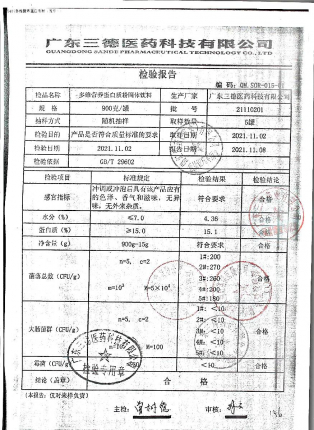 广东三德医药科技有限公司
GUANGDONG SANDE PHARMACEUTICAL TECHNOLOGY CO.,LTD
检验报告
编 码：QM.SOR-015-
检品名称 多维营养蛋白质粉固体饮料 生产厂家 广东三德医药科技有限公司
规 格 900克/罐 批 号 21110201
抽样方式 随机抽样 取样数量 5罐
检验目的 产品是否符合质量标准的要求 取样日期 2021.11.02
检验日期 2021.11.02 报告日期 2021.11.08
检验依据 GB/T 29602
检验项目 标准规定 检验结果 检验结论
感官指标 冲调或冲泡后具有该产品应有的色泽、香气和滋味，无异味，无外来杂质。 符合要求 合格
水分（%） ≤7.0 4.36 合格
蛋白质（%） ≥15.0 15.1 合格
净含量（g） 900g-15g 符合要求 合格
菌落总数（CFU/g） n=5, c=2 m=10⁴ M=5×10⁴ 合格
1#: 200
2#: 270
3#: 260
4#: 200
5#: 180
大肠菌群（CFU/g） n=5, c=2 M=100 合格
1#: <10
2#: <10
3#: <10
4#: <10
5#: <10
霉菌（CFU/g） <10 合格
结论（盖章） 合 格
广东三德医药科技有限公司
检验专用章
主检：
审核：
136